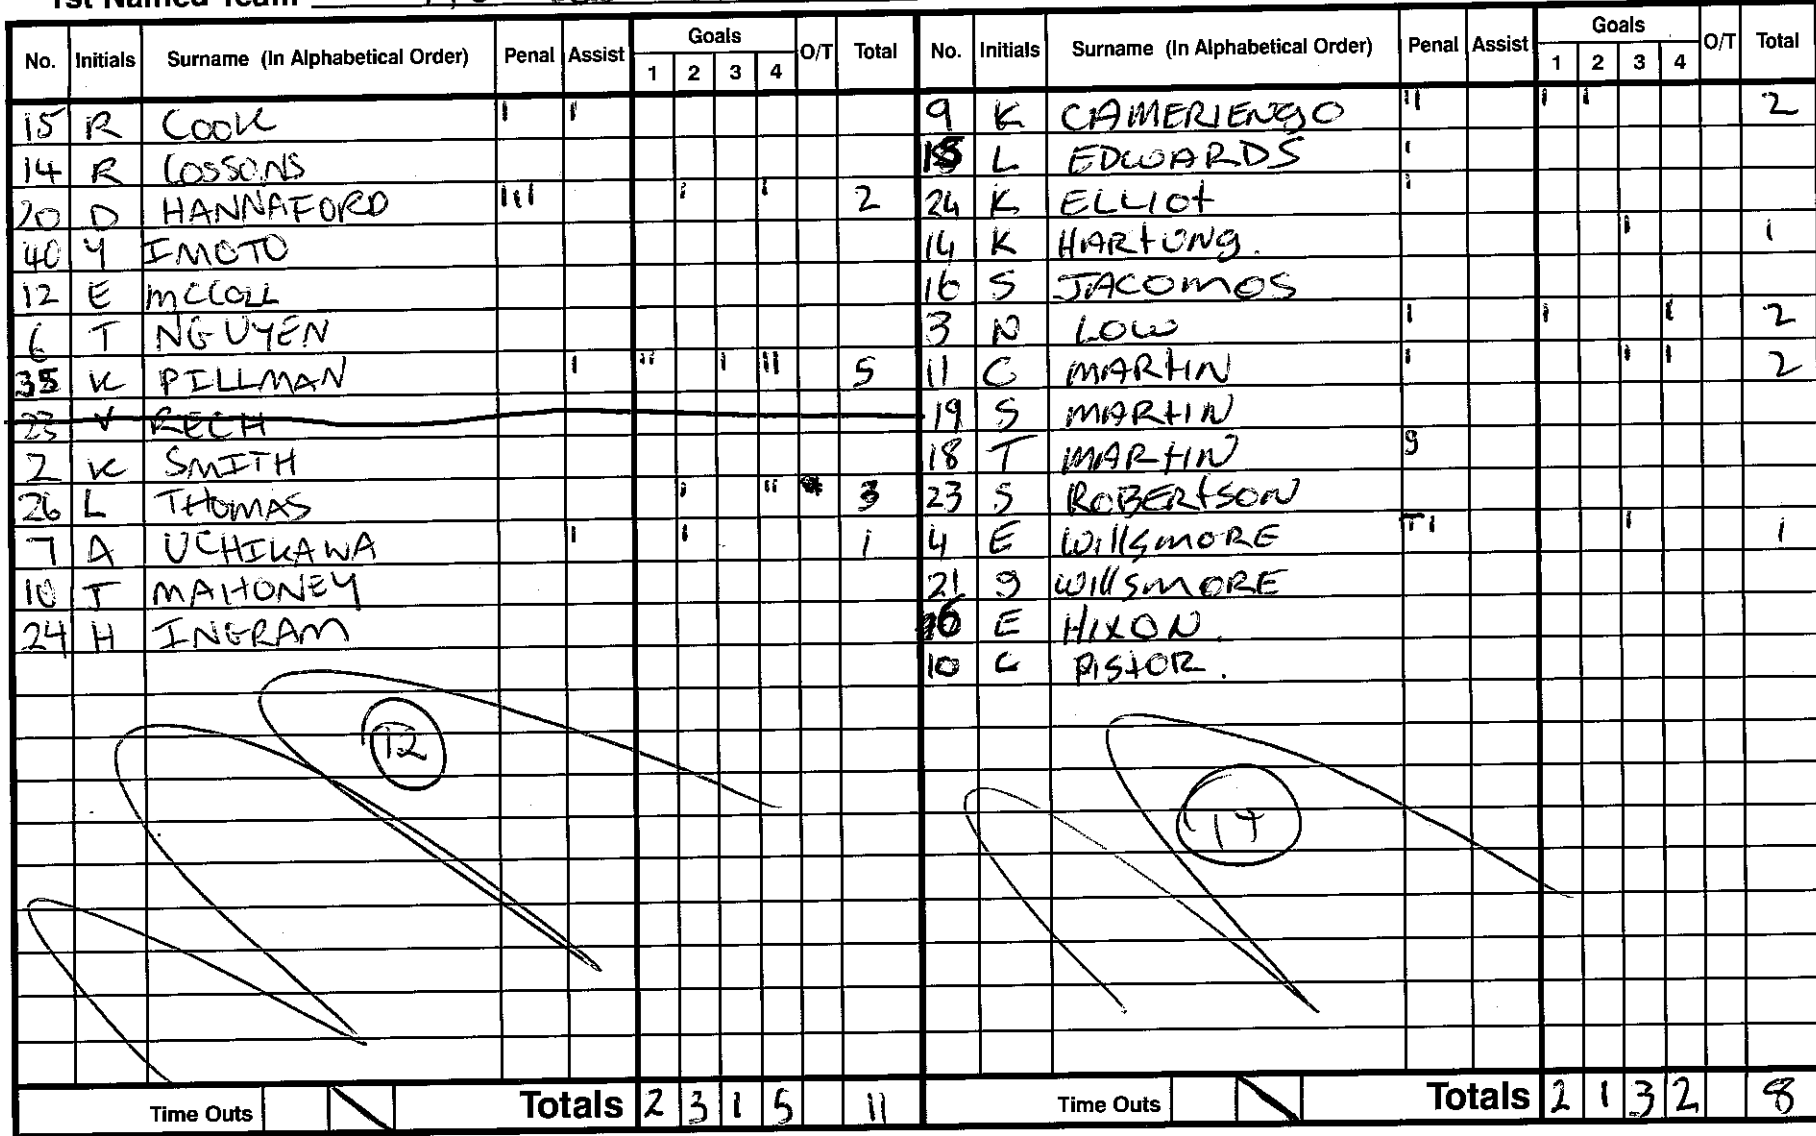 1st Named Team
No. Initials Surname (In Alphabetical Order) Penal Assist Goals 1 2 3 4 O/T Total
15 R COOK I I
14 R COSSONS
20 D HANNAFORD III I I 2
40 Y IMOTO
12 E McCOLL
6 T NGUYEN
35 K PILLMAN I II I II 5
23 V RECH
2 K SMITH
26 L THOMAS I II 3
7 A UCHIKAWA I I 1
10 T MAHONEY
24 H INGRAM
12
Time Outs Totals 2 3 1 5 11
No. Initials Surname (In Alphabetical Order) Penal Assist Goals 1 2 3 4 O/T Total
9 K CAMERIENGO II I I 2
L EDWARDS I
24 K ELLIOt I
14 K HARtUNg. I 1
16 S JACOMOS
3 N LOW I I I 2
11 C MARtIN I I I 2
19 S MARtIN
18 T MARtIN g
23 S ROBERtSON
4 E WillsmORE TI I 1
21 g WillsmORE
E HIXON.
10 C PIStOR.
Time Outs Totals 2 1 3 2 8